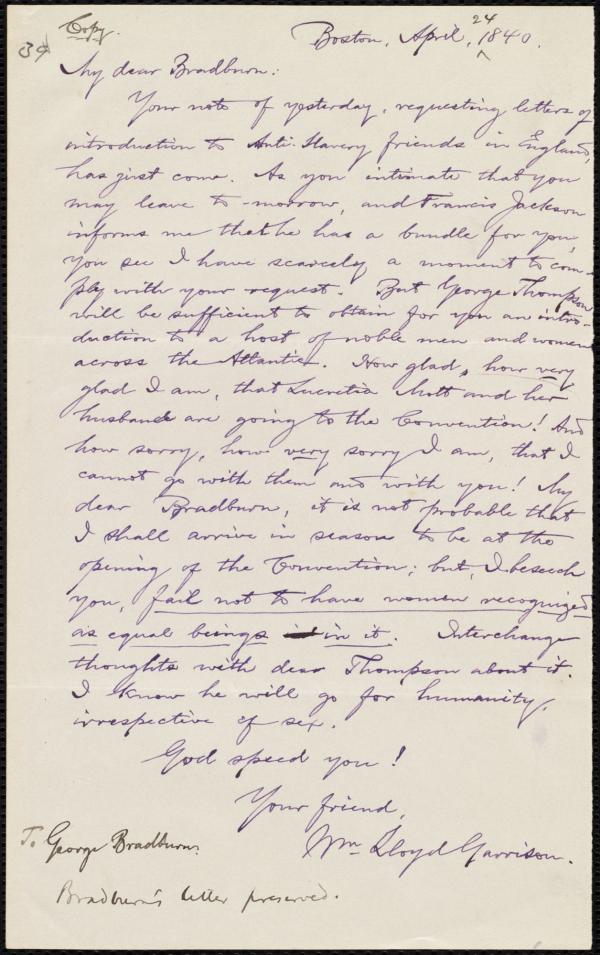 Copy.
39
Boston, April, 24 1840.
My dear Bradburn:
Your note of yesterday, requesting letters of
introduction to Anti-Slavery friends in England,
has just come. As you intimate that you
may leave to-morrow, and Francis Jackson
informs me that he has a bundle for you,
you see I have scarcely a moment to com-
ply with your request. But George Thompson
will be sufficient to obtain for you an intro-
duction to a host of noble men and women
across the Atlantic. How glad, how very
glad I am, that Lucretia Mott and her
husband are going to the Convention! And
how sorry, how very sorry I am, that I
cannot go with them and with you! My
dear Bradburn, it is not probable that
I shall arrive in season to be at the
opening of the Convention; but, I beseech
you, fail not to have women recognized
as equal beings in it. Interchange
thoughts with dear Thompson about it.
I know he will go for humanity,
irrespective of sex.
God speed you!
Your friend,
Wm Lloyd Garrison.
To George Bradburn.
Bradburn's letter preserved.